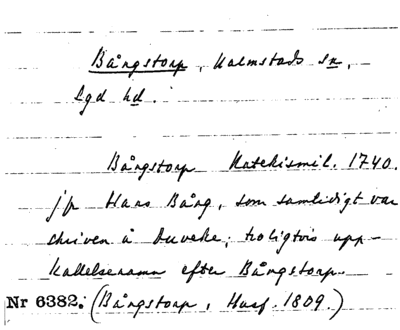 Bångstorp, Kalmstads sn,
Lgd hd.
Bångstorp Katekismil. 1740.
jfr Hans Bång, som samtidigt var
skriven å Duveke; troligtvis upp-
kallelsenamn efter Bångstorp.
Nr 6382. (Bångstorp, Husf. 1809.)